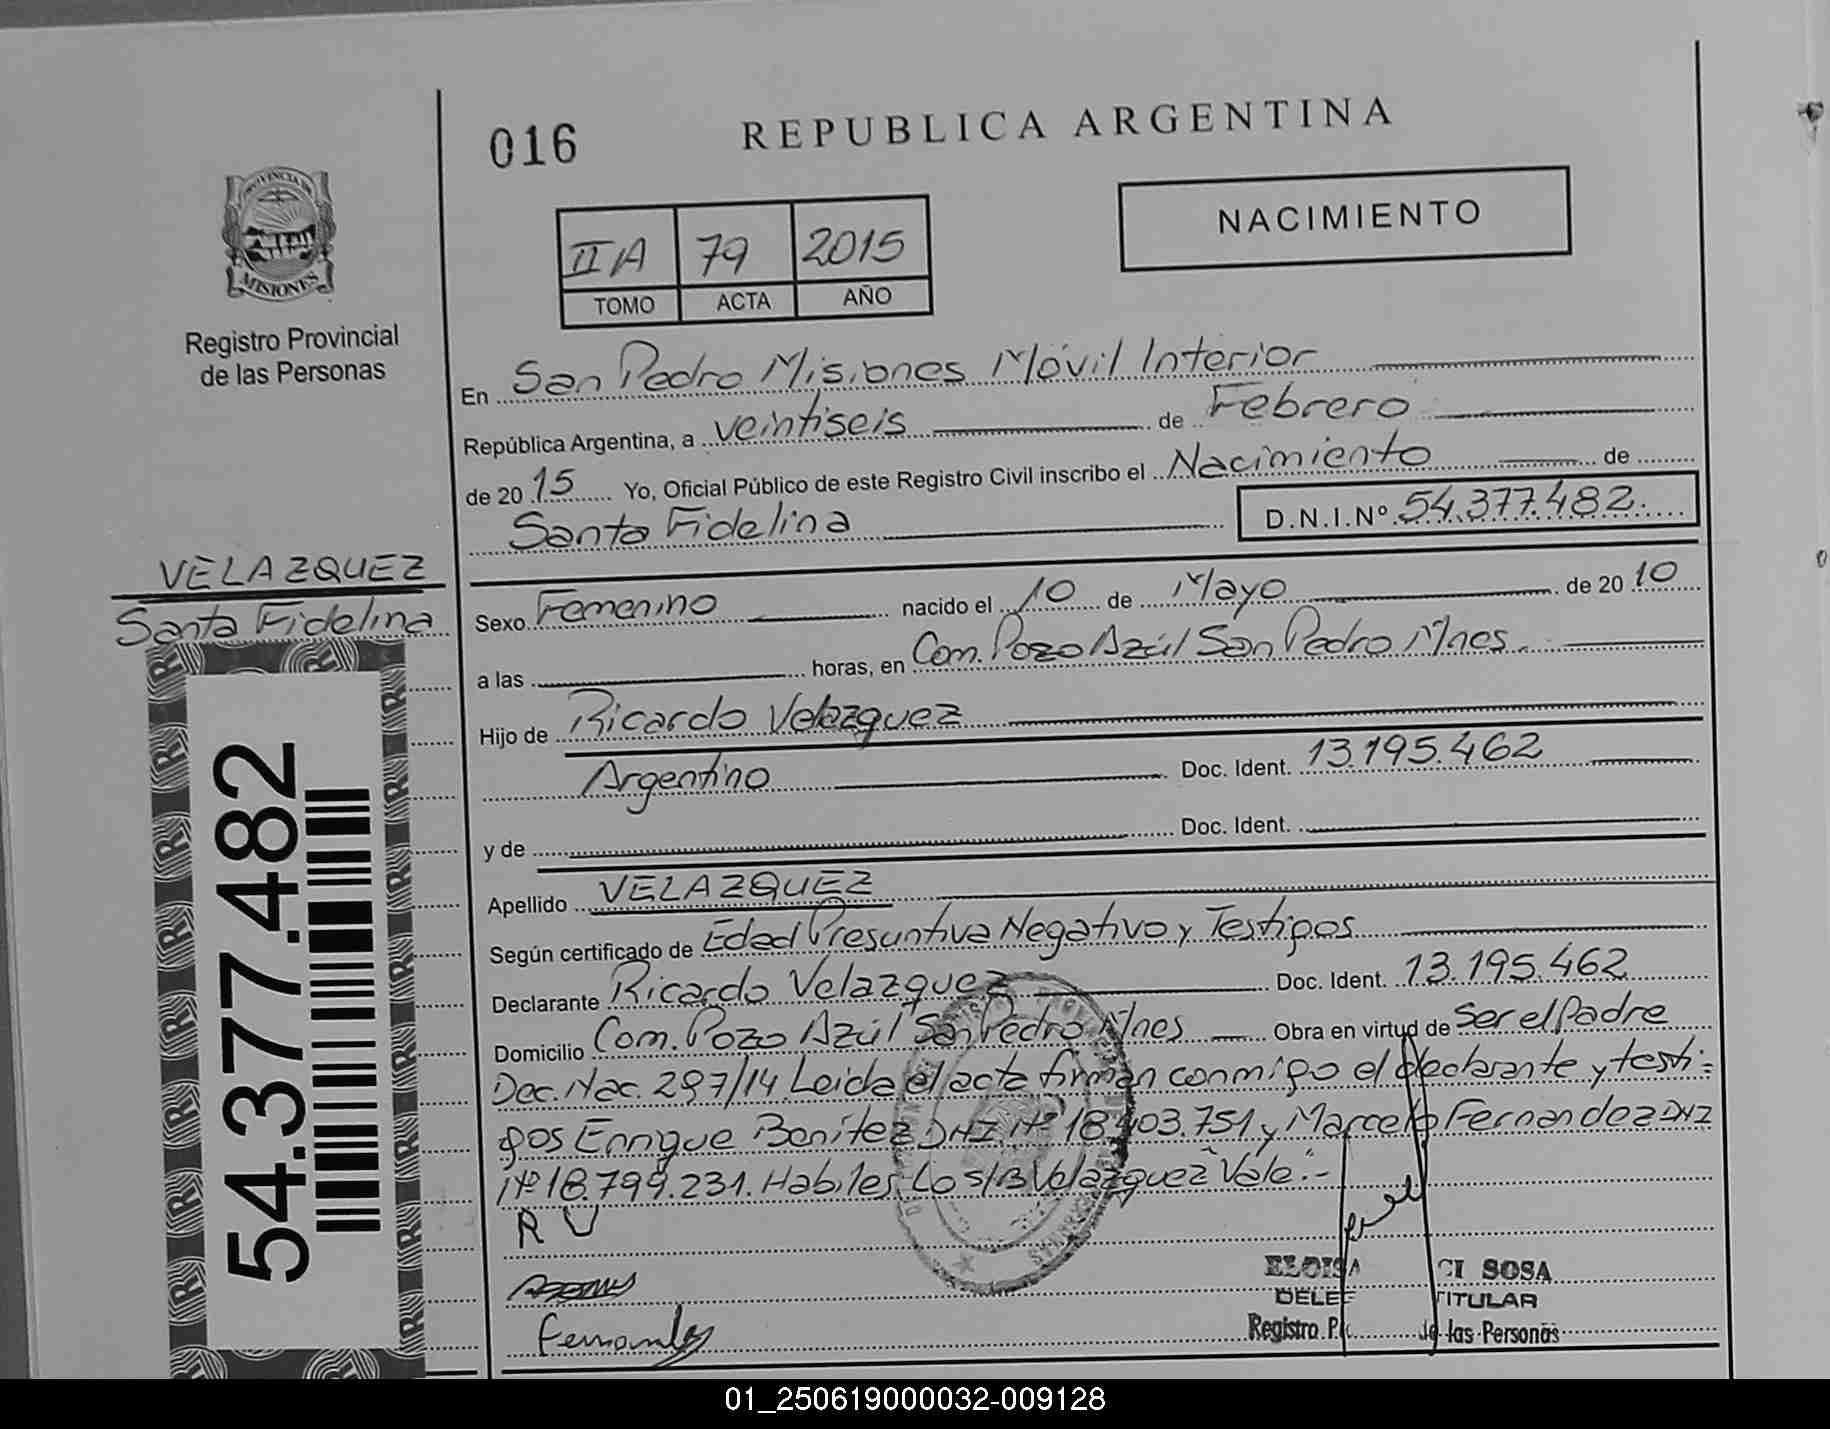 016
REPUBLICA ARGENTINA
PROVINCIA DE
MISIONES
Registro Provincial
de las Personas
NACIMIENTO
II A 79 2015
TOMO ACTA AÑO
En San Pedro Misiones Móvil Interior
República Argentina, a veintiseis de Febrero
de 2015 Yo, Oficial Público de este Registro Civil inscribo el Nacimiento de
Santa Fidelina D.N.I.Nº 54.377.482.
VELAZQUEZ
Santa Fidelina
54.377.482
Sexo Femenino nacido el 10 de Mayo de 2010
a las horas, en Com. Pozo Azúl San Pedro Mnes.
Hijo de Ricardo Velazquez
Argentino Doc. Ident. 13.195.462
y de Doc. Ident.
Apellido VELAZQUEZ
Según certificado de Edad Presuntiva Negativo y Testigos
Declarante Ricardo Velazquez Doc. Ident. 13.195.462
Domicilio Com. Pozo Azúl San Pedro Mnes Obra en virtud de Ser el Padre
Dec. Nac. 297/14. Leida el acta firman conmigo el declarante y testi-
gos Enrique Benítez DNI Nº 18.403.751 y Marcelo Fernandez DNI
Nº 18.799.231. Habiles Lo S/B Velazquez Vale.-
R V
Fernandez
ELOISA CI SOSA
DELE TITULAR
Registro P de las Personas
01_250619000032-009128